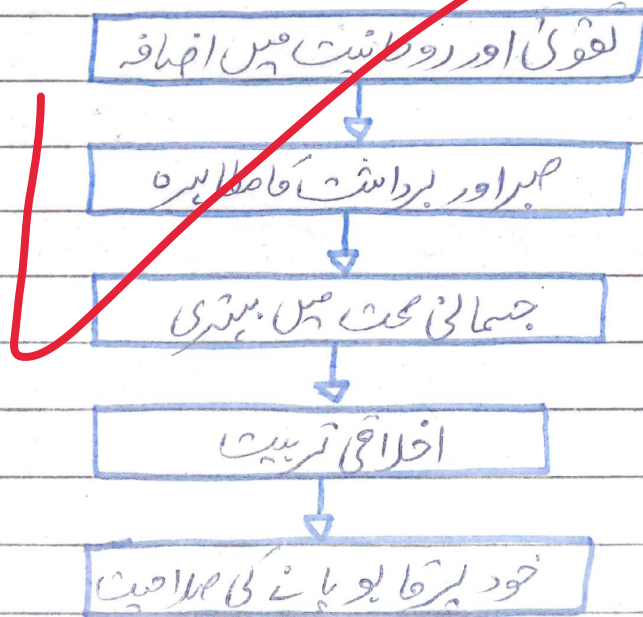 تقویٰ اور روحانیت میں اضافہ
صبر اور برداشت کا مظاہرہ
جسمانی صحت میں بہتری
اخلاقی تربیت
خود پر قابو پانے کی صلاحیت